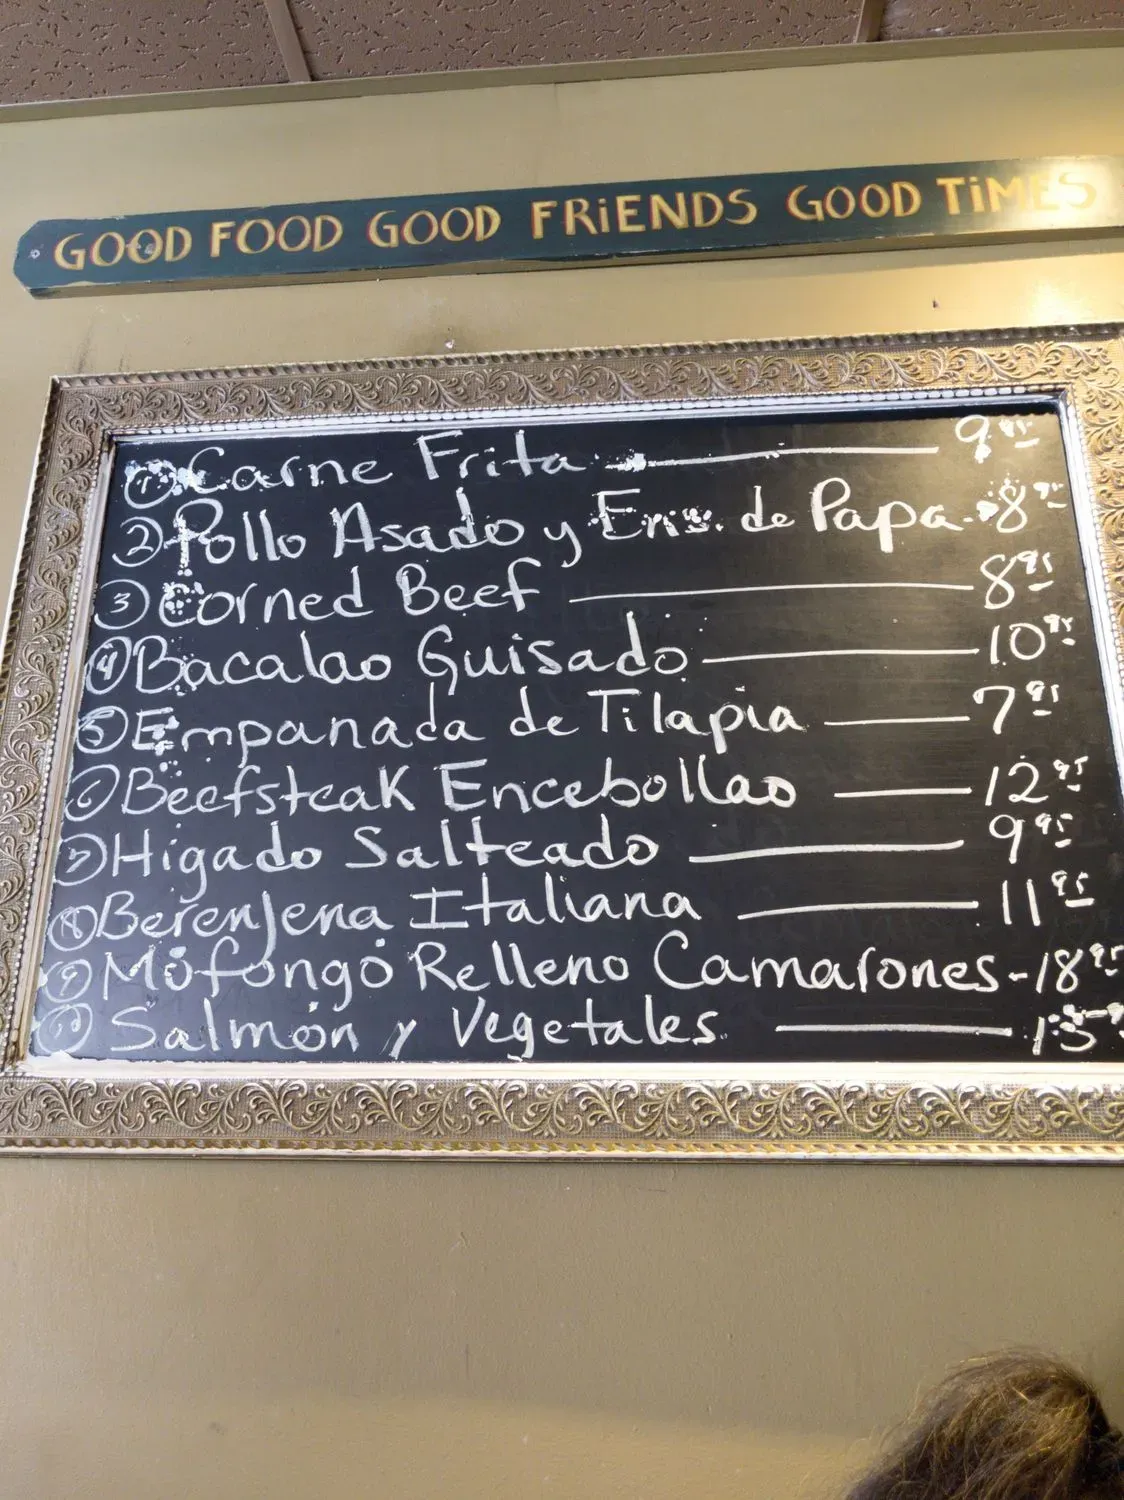 GOOD FOOD GOOD FRiENDS GOOD TiMES
① Carne Frita — 9.95
② Pollo Asado y Ens. de Papa - 8.95
③ Corned Beef — 8.95
④ Bacalao Guisado — 10.95
⑤ Empanada de Tilapia — 7.95
⑥ Beefsteak Encebollao — 12.95
⑦ Higado Salteado — 9.95
⑧ Berenjena Italiana — 11.95
⑨ Mofongo Relleno Camarones - 18.95
Salmón y Vegetales —